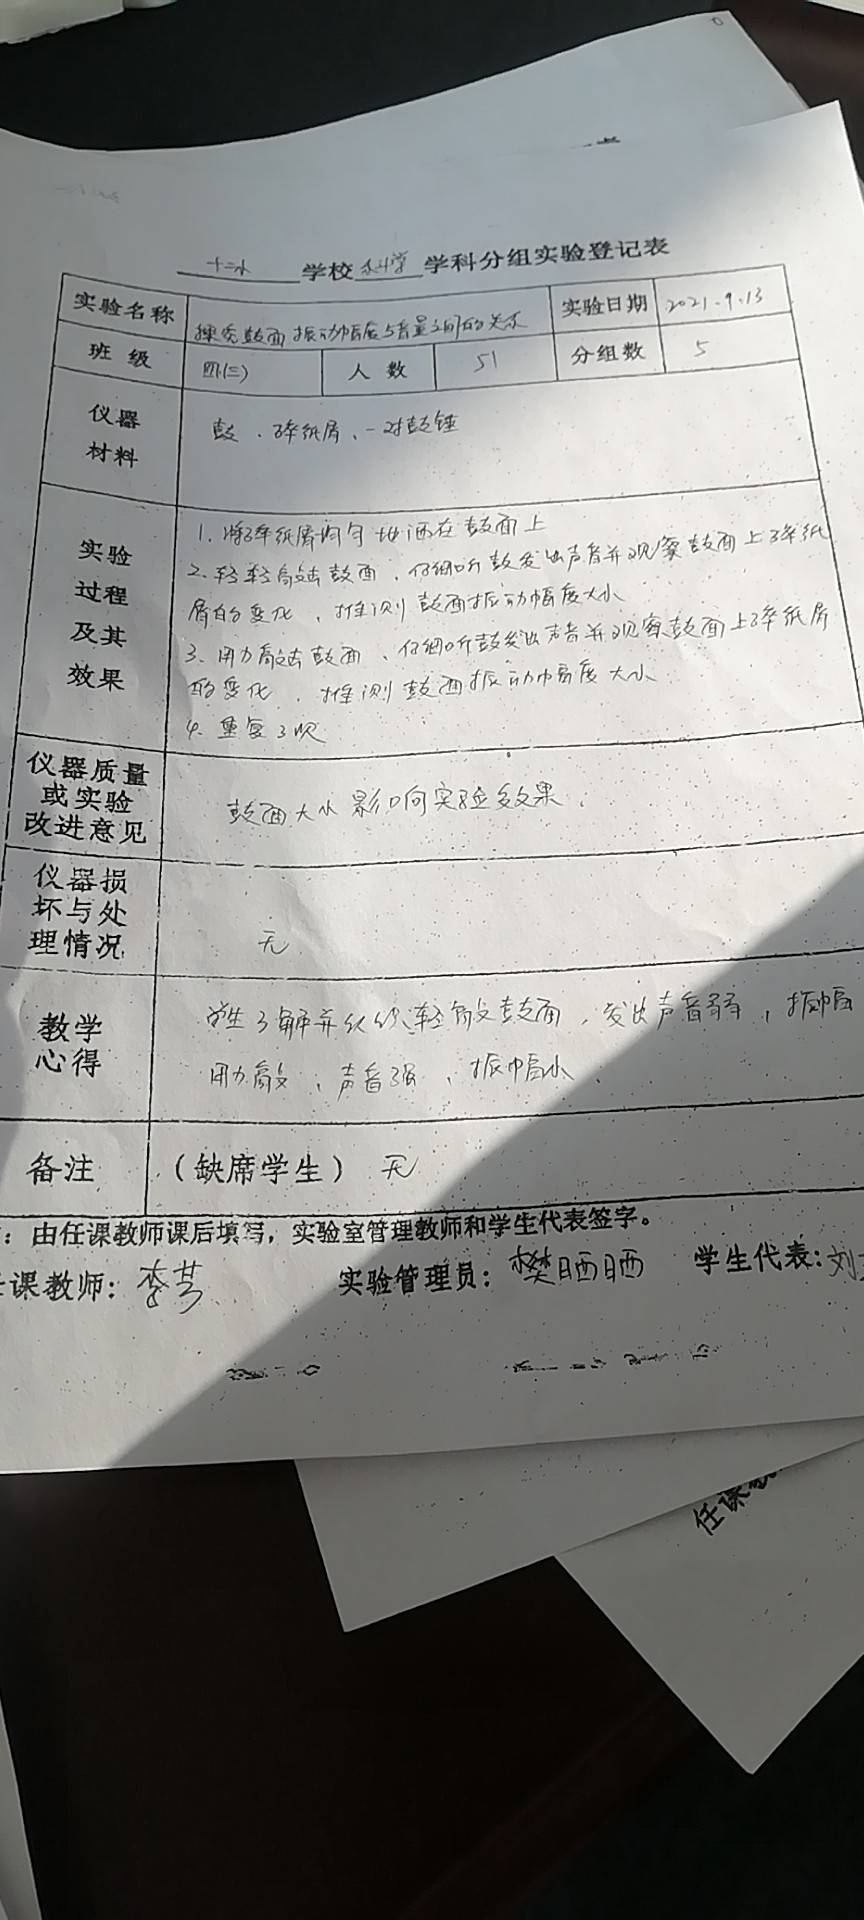 十二小 学校 科学 学科分组实验登记表
实验名称 探究鼓面振动幅度与音量之间的关系 实验日期 2021.9.13
班级 四(三) 人数 51 分组数 5
仪器材料 鼓、碎纸屑、一对鼓锤
实验过程及其效果
1. 将碎纸屑均匀地洒在鼓面上
2. 轻轻敲击鼓面、仔细听鼓发出声音并观察鼓面上碎纸
屑的变化、推测鼓面振动幅度大小
3. 用力敲击鼓面、仔细听鼓发出声音并观察鼓面上碎纸屑
的变化、推测鼓面振动幅度大小
4. 重复3次
仪器质量或实验改进意见 鼓面大小影响实验效果.
仪器损坏与处理情况 无
教学心得 学生了解并 轻敲鼓面,发出声音弱,振幅
用力敲、声音强、振幅小
备注 (缺席学生) 无
:由任课教师课后填写,实验室管理教师和学生代表签字。
课教师: 李芳 实验管理员: 樊晒晒 学生代表: 刘
任课教